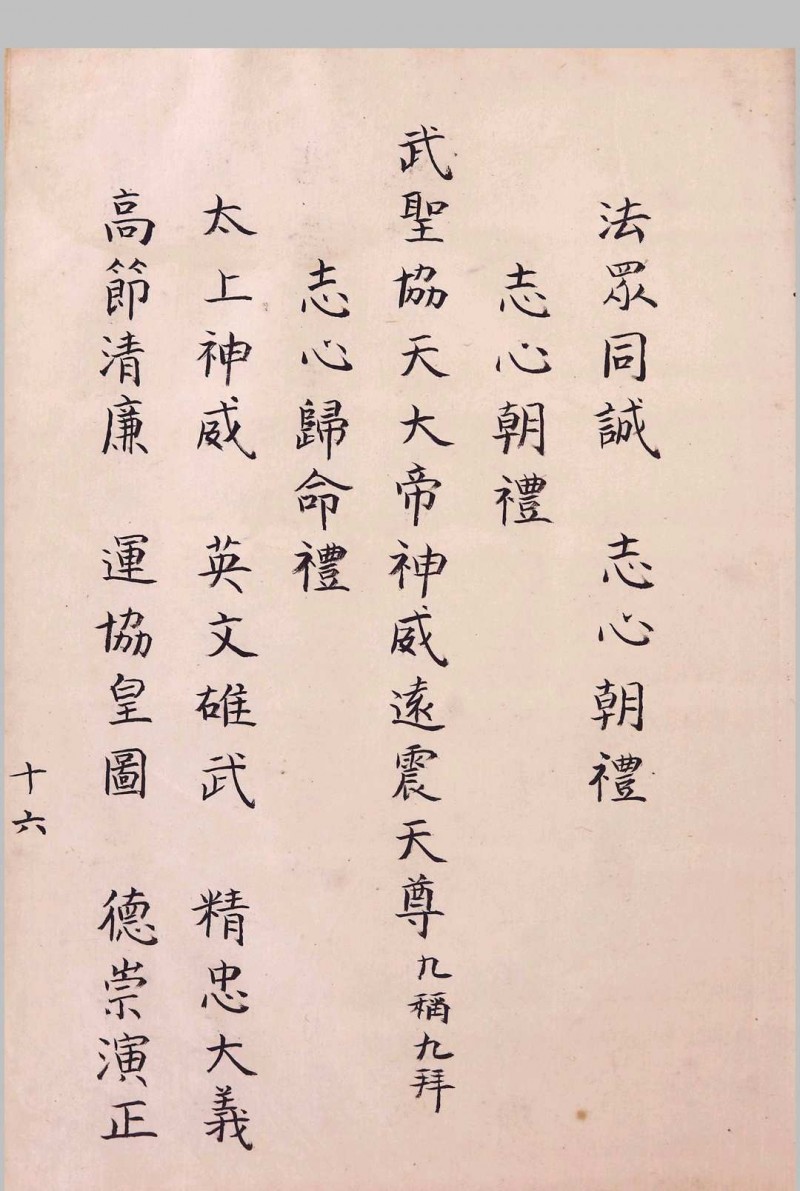 法眾同誠　志心朝禮
志心朝禮
武聖協天大帝神威遠震天尊九稱九拜
志心歸命禮
太上神威　英文雄武　精忠大義
高節清廉　運協皇圖　德崇演正
十六